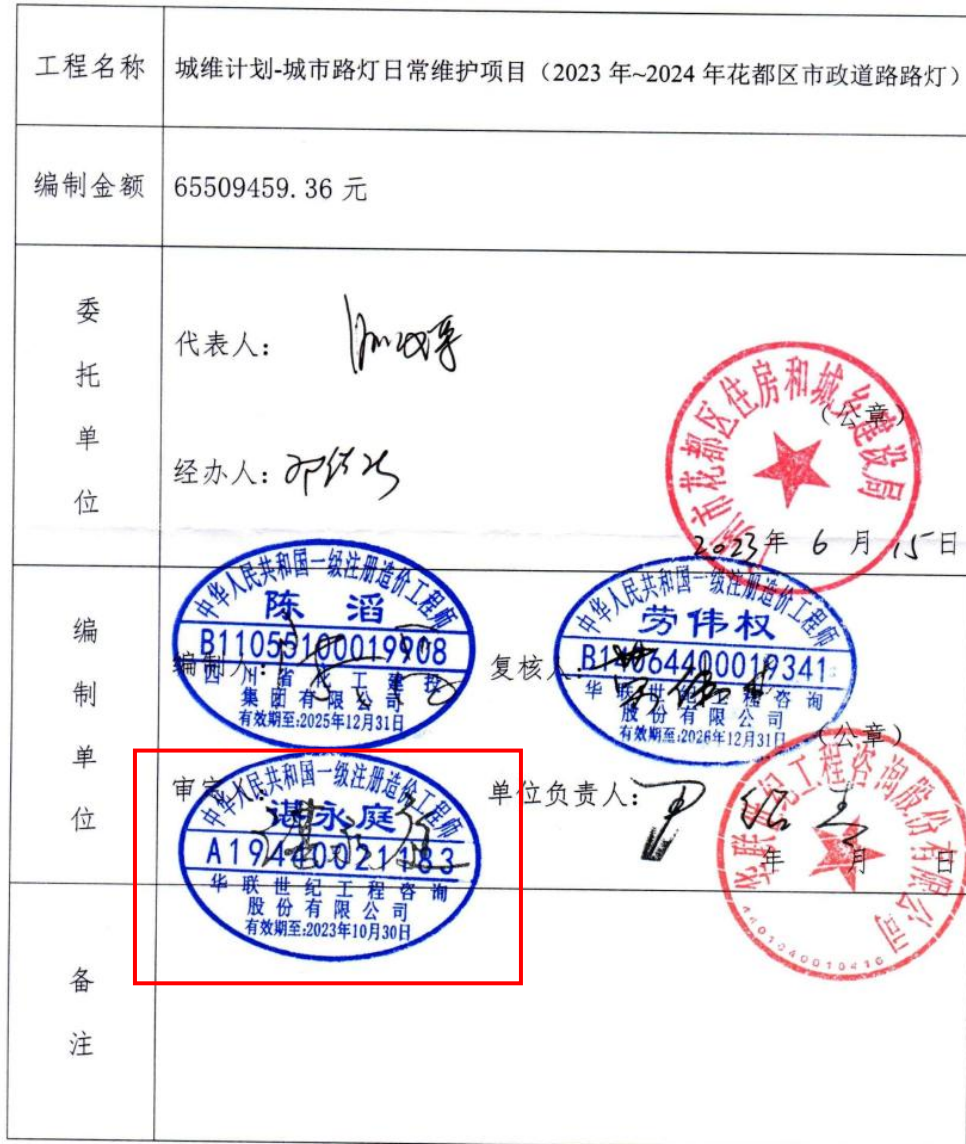 工程名称 城维计划-城市路灯日常维护项目（2023年~2024年花都区市政道路路灯）
编制金额 65509459.36 元
委托单位
代表人：
（公章）
市花都区住房和城乡建设局
经办人：
2023年 6 月 15日
编制单位
中华人民共和国一级注册造价工程师
陈滔
B11055100019908
编制人：
四川省化工建投
集团有限公司
有效期至:2025年12月31日
中华人民共和国一级注册造价工程师
劳伟权
B14064400019341
复核人：
华联世纪工程咨询
股份有限公司
有效期至:2026年12月31日
（公章）
审定人：
中华人民共和国一级注册造价工程师
谌永庭
A19440021183
华联世纪工程咨询
股份有限公司
有效期至:2023年10月30日
单位负责人：
年 月 日
华联世纪工程咨询股份有限公司
4401040010410
备注